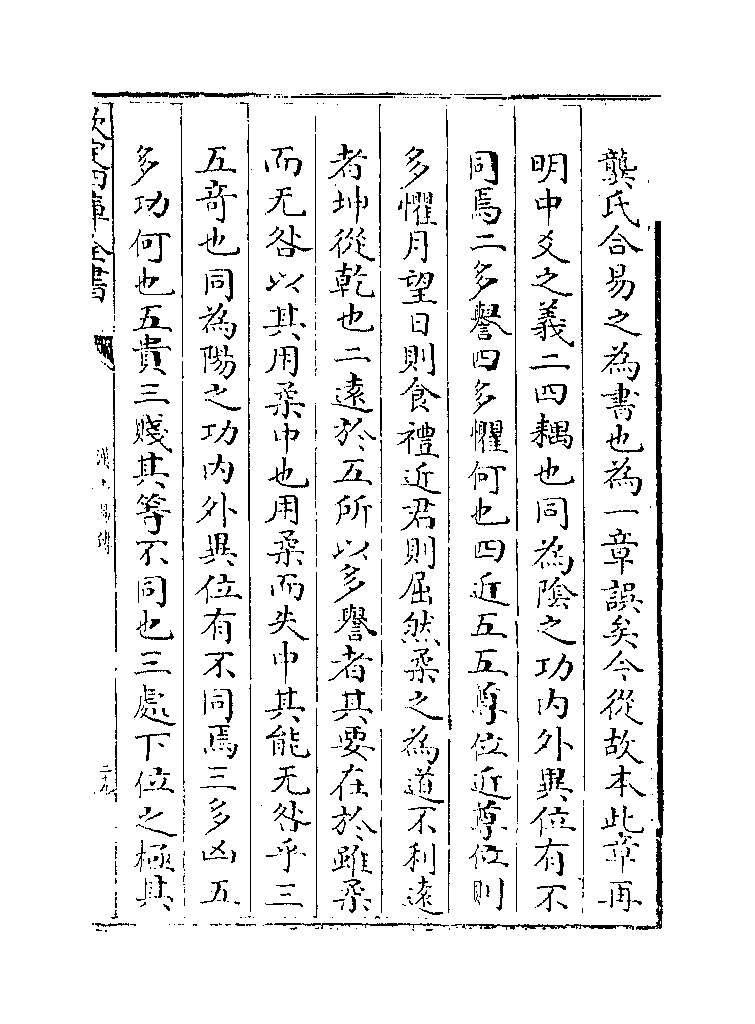 龔氏合易之為書也為一章誤矣今從故本此章再
明中爻之義二四耦也同為陰之功内外異位有不
同焉二多譽四多懼何也四近五五尊位近尊位則
多懼月望日則食禮近君則屈然柔之為道不利遠
者坤從乾也二遠於五所以多譽者其要在於雖柔
而无咎以其用柔中也用柔而失中其能无咎乎三
五奇也同為陽之功内外異位有不同焉三多凶五
多功何也五貴三賤其等不同也三處下位之極其
欽定四庫全書
漢上易傳